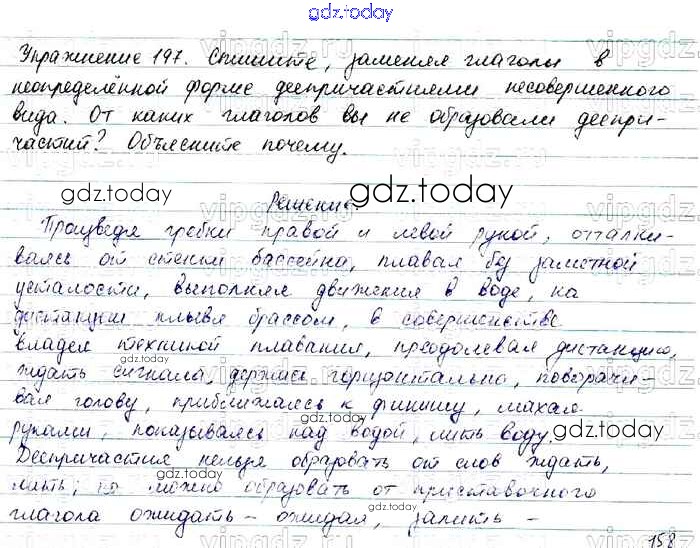 gdz.today
Упражнение 197. Спишите, заменяя глаголы в
неопределённой форме деепричастиями несовершенного
вида. От каких глаголов вы не образовали деепри-
частий? Объясните почему.
gdz.today
gdz.today
Решение.
Произведя гребки правой и левой рукой, отталки-
ваясь от стенки бассейна, плавая без заметной
усталости, выполняя движения в воде, на
дистанции плывя брассом, в совершенстве
владея техникой плавания, преодолевая дистанцию,
gdz.today
ждать сигнала, держась горизонтально, поворачи-
вая голову, приближаясь к финишу, махая
gdz.today
руками, показываясь над водой, лить воду
gdz.today
Деепричастия нельзя образовать от слов ждать,
gdz.today
лить, но можно образовать от приставочного
глагола ожидать - ожидая, залить -
gdz.today
158